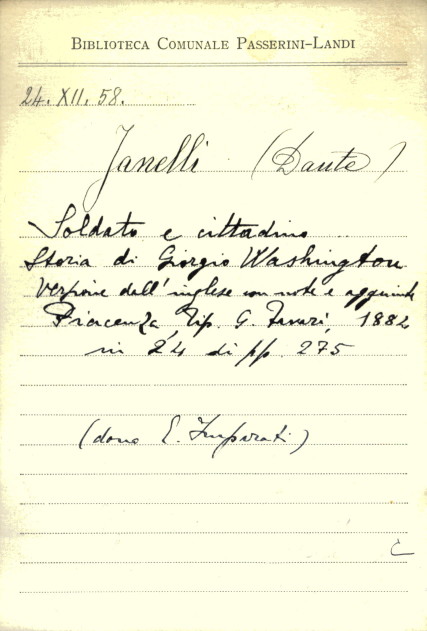 BIBLIOTECA COMUNALE PASSERINI-LANDI
24. XII. 58.
Janelli (Dante)
Soldato e cittadino
Storia di Giorgio Washington
Versione dall'inglese con note e aggiunte
Piacenza, Tip. G. Tavari, 1882
in 24 di pp. 275
(dono E. Imperati)
C